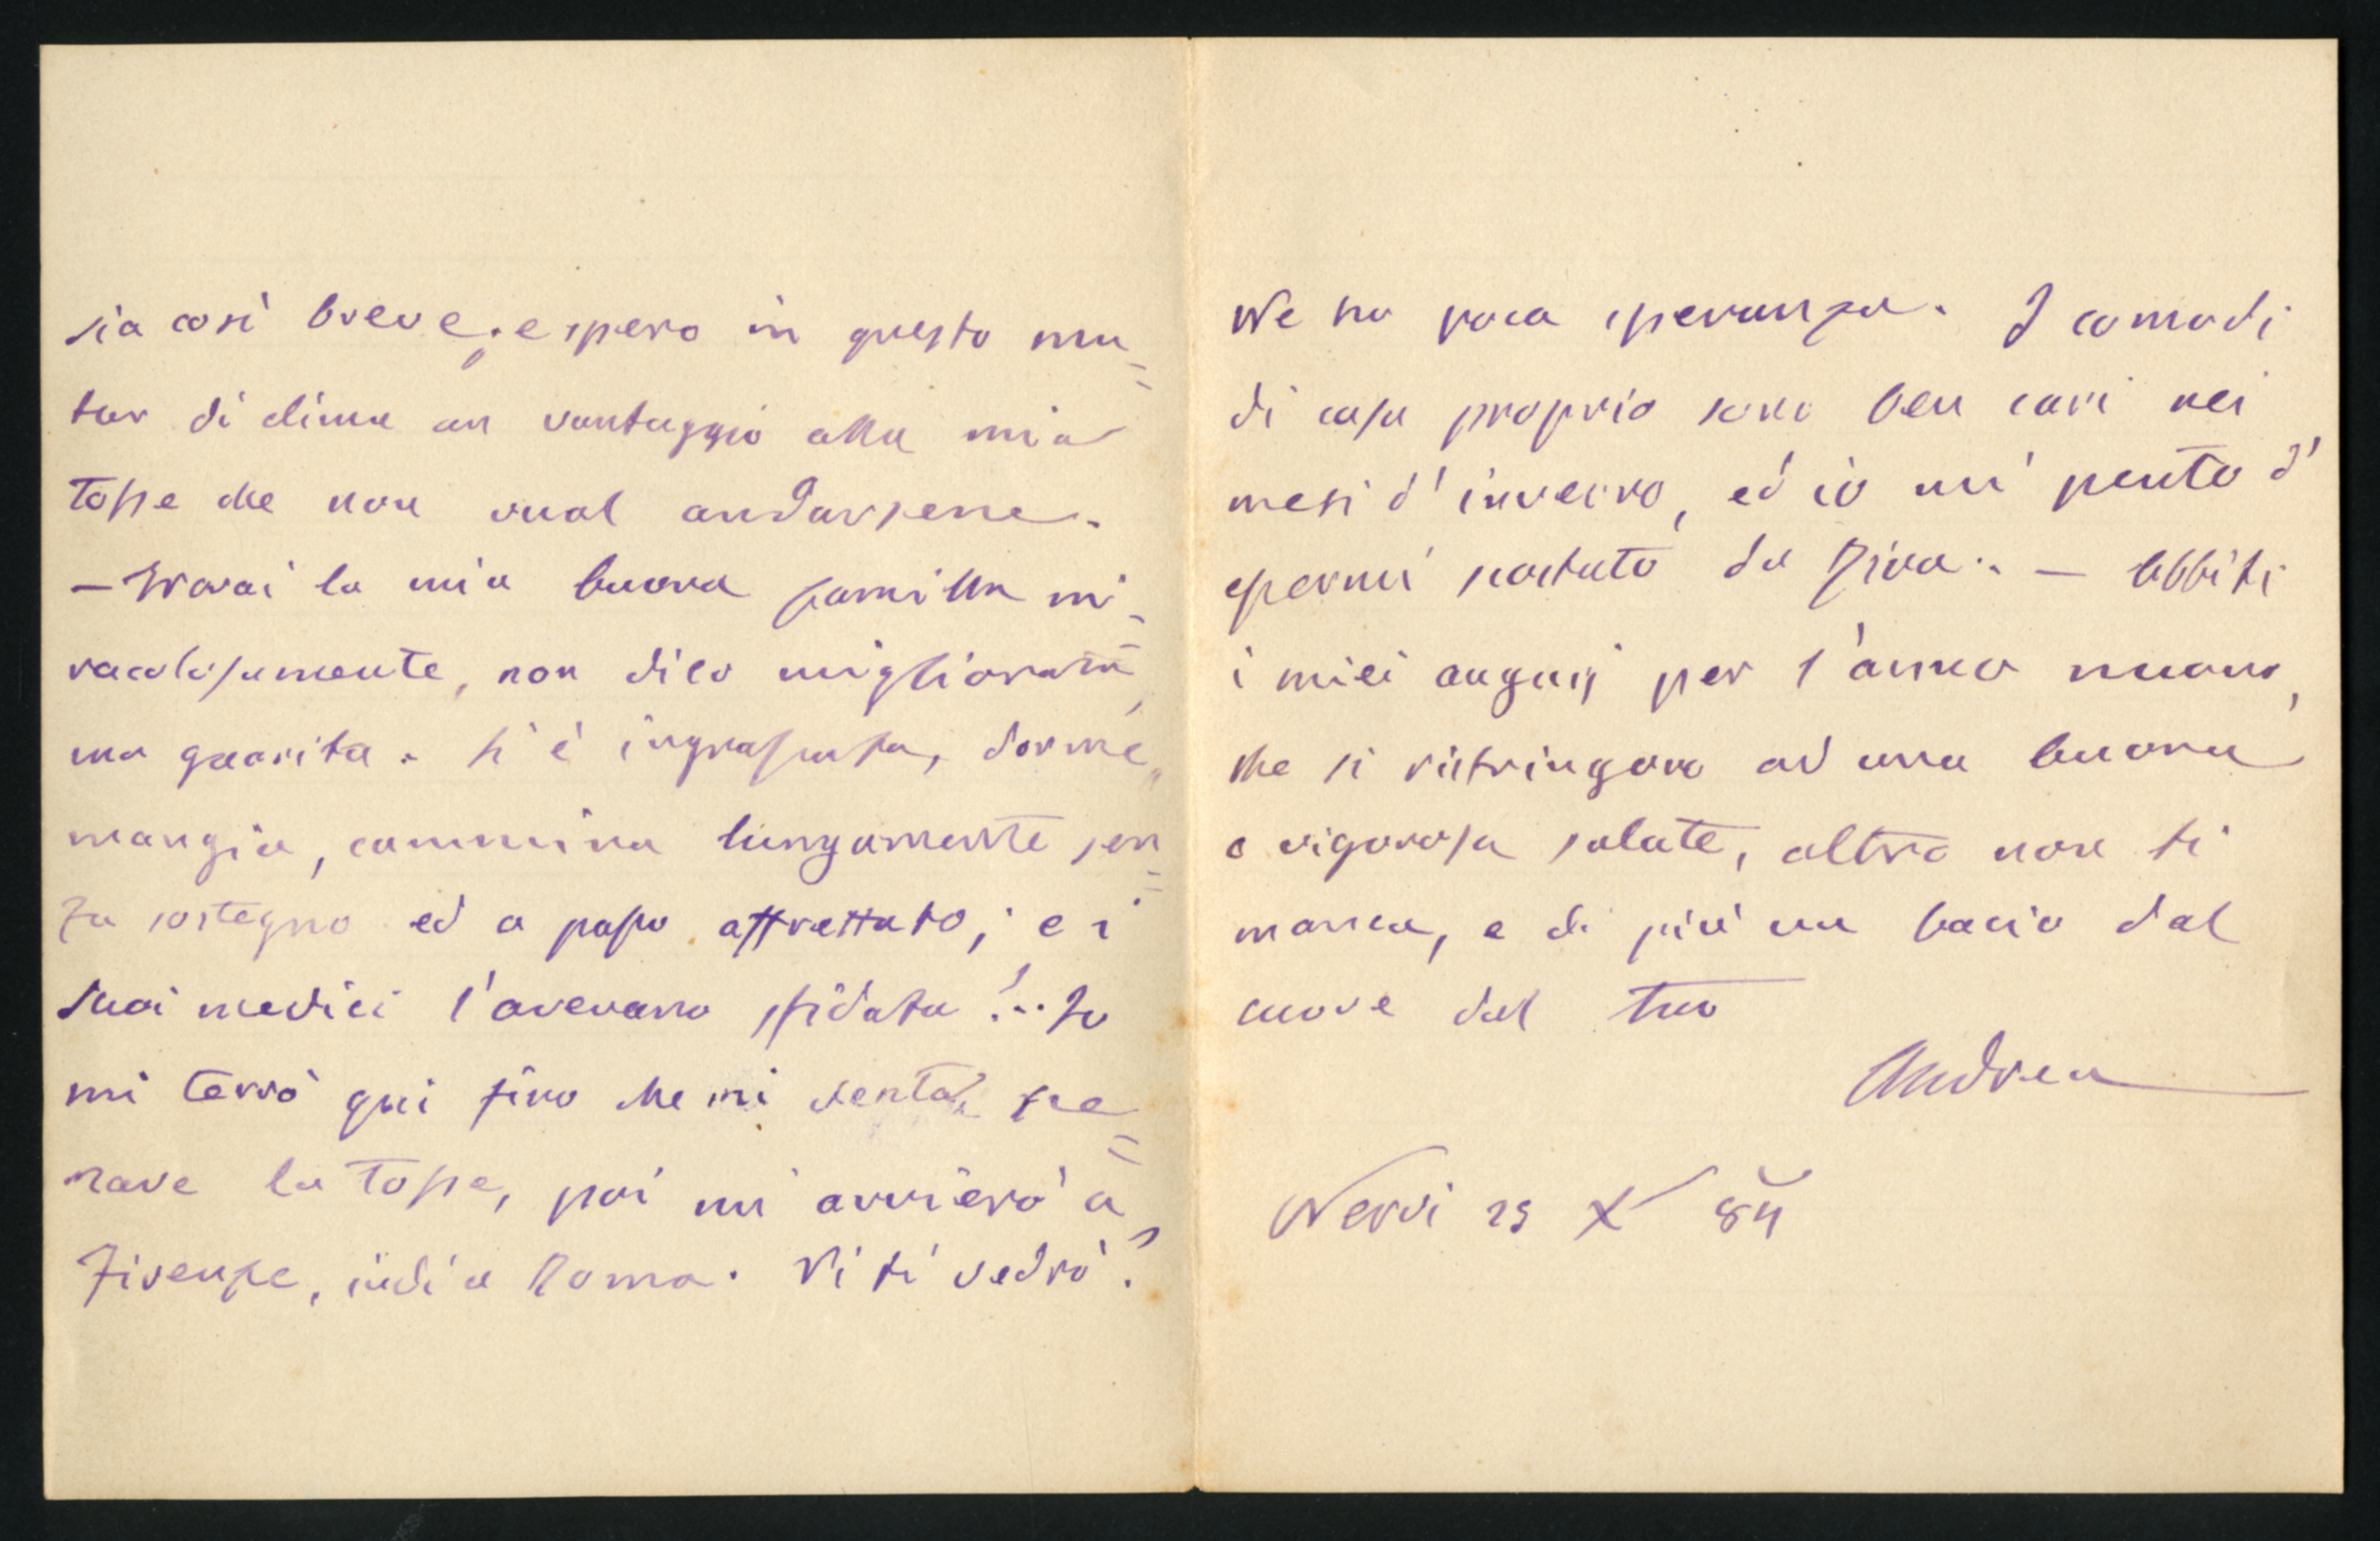 sia così breve, e spero in questo mu=
tar di clima un vantaggio alla mia
tosse che non vuol andarsene.
– Trovai la mia buona Camilla mi=
racolosamente, non dico migliorata,
ma guarita. Si è ingrassata, dorme,
mangia, cammina lungamente sen=
za sostegno ed a passo affrettato; e i
suoi medici l'avevano sfidata!.. Io
mi terrò qui fino che mi senta sce=
mare la tosse, poi mi avvierò a
Firenze, indi a Roma. Vi ti vedrò?
Ne ho poca speranza. I comodi
di casa propria sono ben cari nei
mesi d'inverno, ed io mi pento d'
essermi scostato da Riva. – Abbiti
i miei augurj per l'anno nuovo,
che si ristringono ad una buona
e vigorosa salute, altro non ti
manca, e di più un bacio dal
cuore dal tuo
Andrea
Nervi 29 X 84